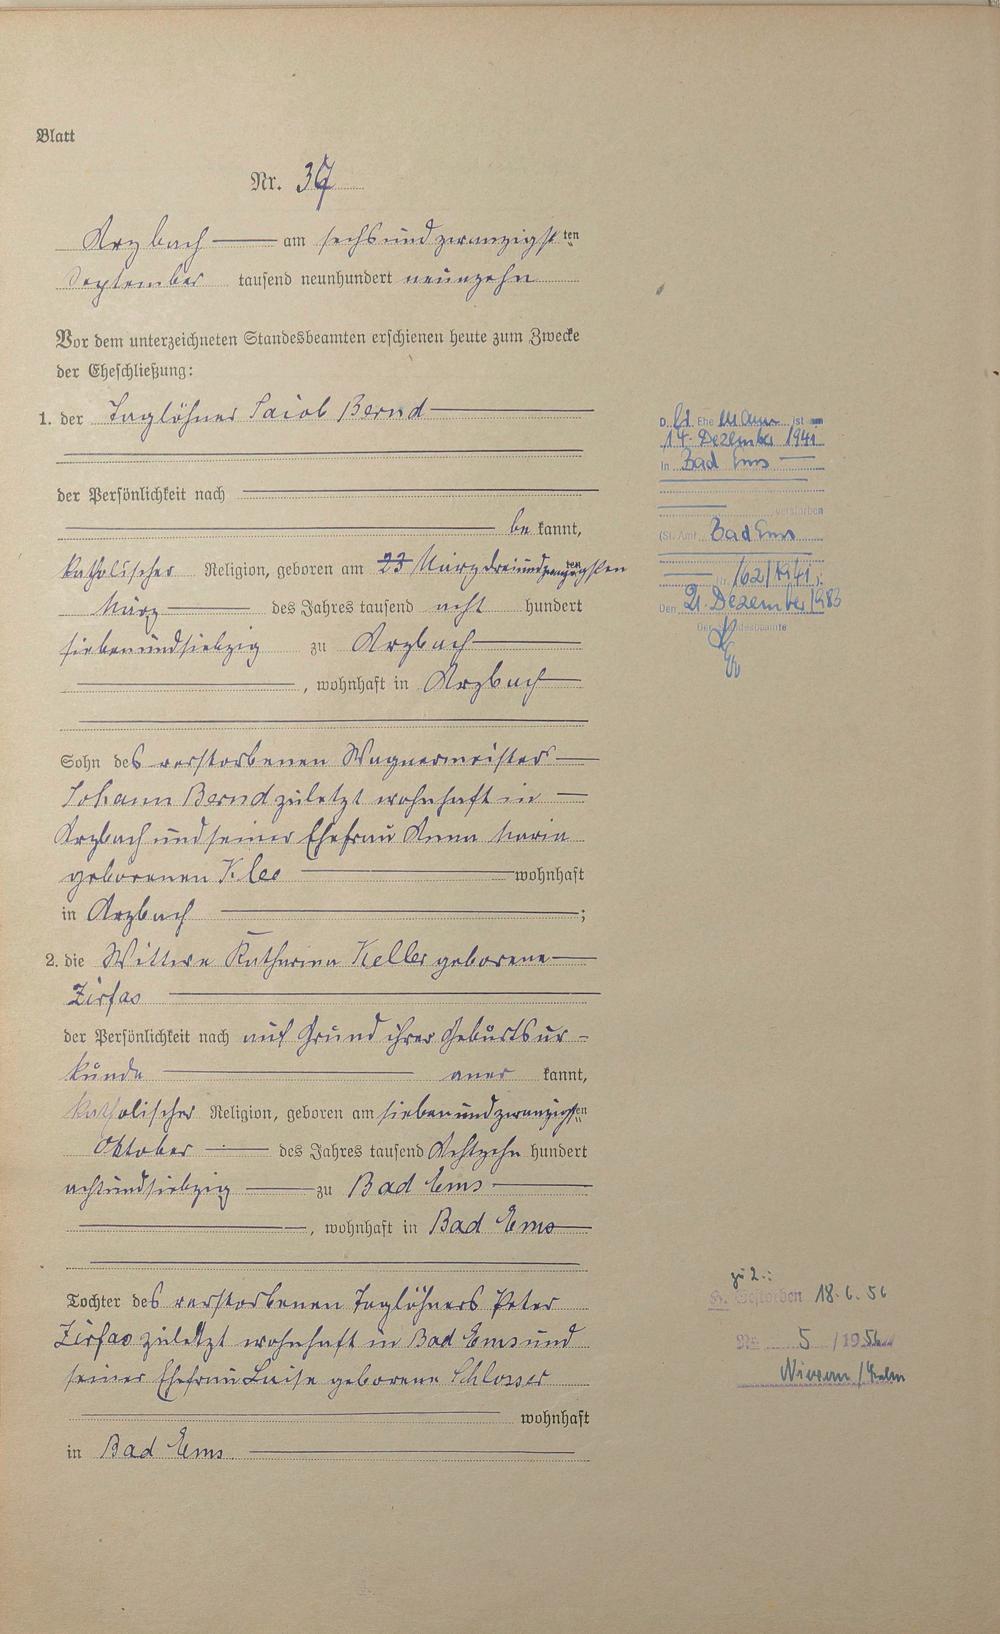 Blatt
Nr. 37
Arzbach am sechsundzwanzigsten
September tausend neunhundert neunzehn
Vor dem unterzeichneten Standesbeamten erschienen heute zum Zwecke
der Eheschließung:
1. der Taglöhner Jacob Bernd
der Persönlichkeit nach
be kannt,
katholischer Religion, geboren am 23 März dreiundzwanzigsten
März des Jahres tausend acht hundert
siebenundsiebzig zu Arzbach
, wohnhaft in Arzbach
Sohn des verstorbenen Wagnermeisters
Johann Bernd zuletzt wohnhaft in
Arzbach und seiner Ehefrau Anna Maria
geborenen Klee wohnhaft
in Arzbach ;
2. die Wittwe Katharina Keller geborene
Zirfas
der Persönlichkeit nach auf Grund ihrer Geburtsur-
kunde aner kannt,
katholischer Religion, geboren am siebenundzwanzigsten
Oktober des Jahres tausend Achtzehn hundert
achtundsiebzig zu Bad Ems
, wohnhaft in Bad Ems
Tochter des verstorbenen Taglöhners Peter
Zirfas zuletzt wohnhaft in Bad Ems und
seiner Ehefrau Luise geborene Schlosser
wohnhaft
in Bad Ems
D er Ehe mann ist am
14. Dezember 1941
in Bad Ems
verstorben
(St. Amt Bad Ems
Nr. 162/1941).
Den 21. Dezember 1983
Der Standesbeamte
zu 2.:
Gestorben 18.6.56
Nr. 5 /1956
Nievern/Lahn